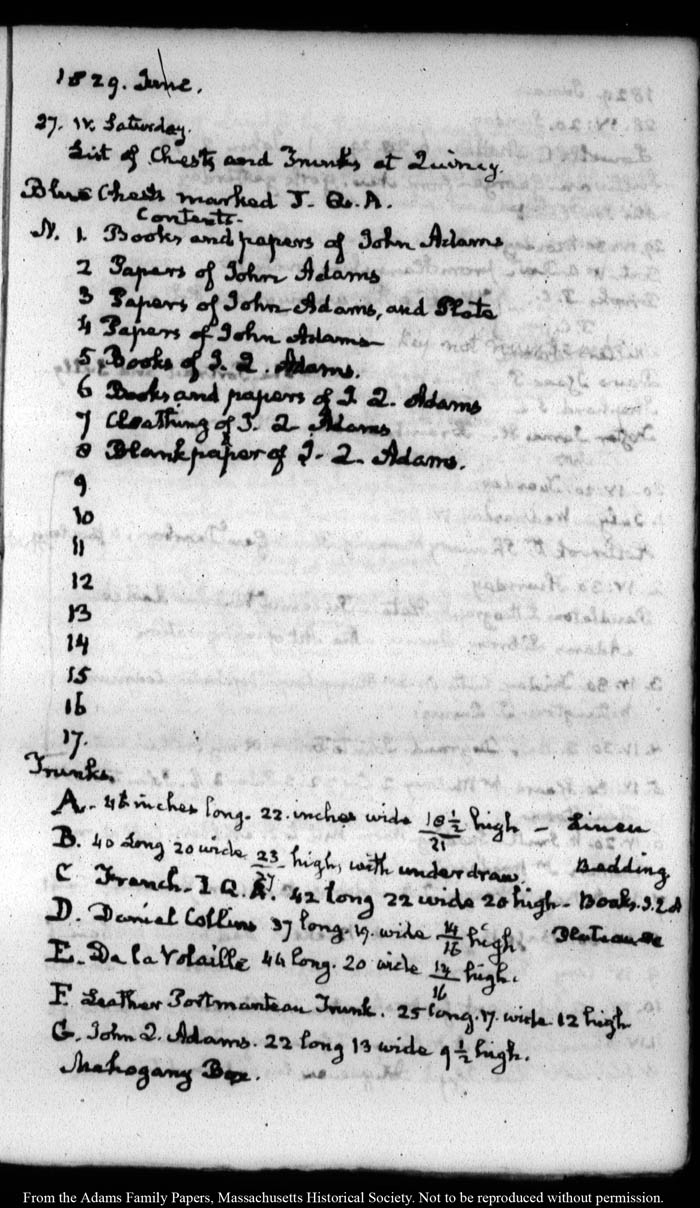 1829. June.
27. IV. Saturday.
List of Chests and Trunks at Quincy.
Blue Chests marked J. Q. A.
Contents.
N. 1. Books and papers of John Adams
2 Papers of John Adams
3 Papers of John Adams, and Plate
4 Papers of John Adams
5 Books of J. Q. Adams.
6 Books and papers of J. Q. Adams
7 Cloathing of J. Q Adams
8 Blank paper of J. Q. Adams.
9
10
11
12
13
14
15
16
17.
Trunks.
A. inches long. 22. inches wide 18 1/2 / 21 high – Linen
B. 40 Long 20 wide 23 / 27 high, with underdraw. Bedding
C French. I Q. A. 42 long 22 wide 20 high. Books. J. Q A
D. Daniel Collins 37 long. 19. wide 14 / 16 high. Plateau &c
E. De la Volaille 44 long. 20 wide 14 / 16 high.
F. Leather Portmanteau Trunk. 25 long. 17. wide. 12 high
G. John Q. Adams. 22 long 13 wide 9 1/2 high.
Mahogany Box.
From the Adams Family Papers, Massachusetts Historical Society. Not to be reproduced without permission.